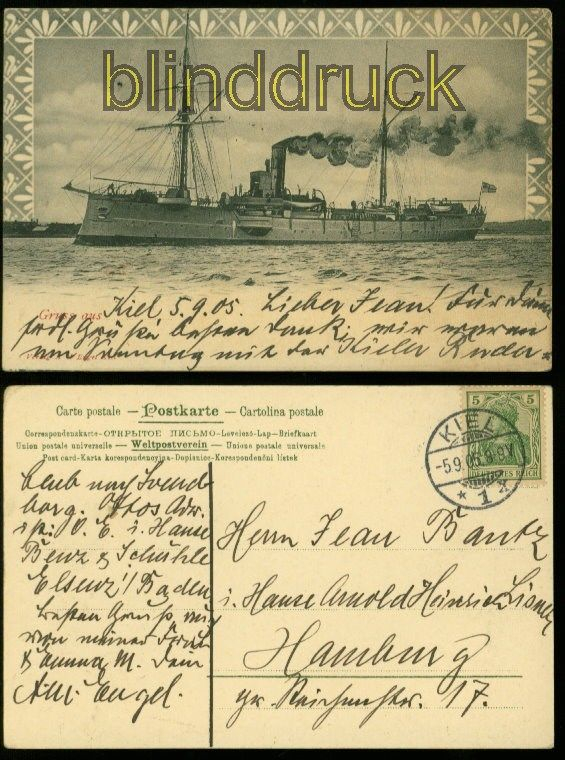 blinddruck
Gruss aus Kiel 5.9.05. Lieber Jean! Für Deine
frdl. Grüße besten Dank; wir waren
am Sonntag mit der Kieler Ruder-
Carte postale — Postkarte — Cartolina postale
Correspondenzkarte-ОТКРЫТОЕ ПИСЬМО-Levelező-Lap-Briefkaart
Union postale universelle — Weltpostverein — Unione postale universale
Post card-Karta korespondencyjna-Dopisnice-Korespondenční lístek
5 5
DEUTSCHES REICH
KIEL
-5.9.05
* 1 x
Club nach Svend-
borg. Ottos Adr.
O. E. i. Hause
Benz & Schühle
Elsenz i/ Baden
besten Gruss
von meiner Frau
& Emma M. Dein
Engel.
Herrn Jean Bantz
i. Hause Arnold Heinrich
Hamburg
gr. Reichenstr. 17.